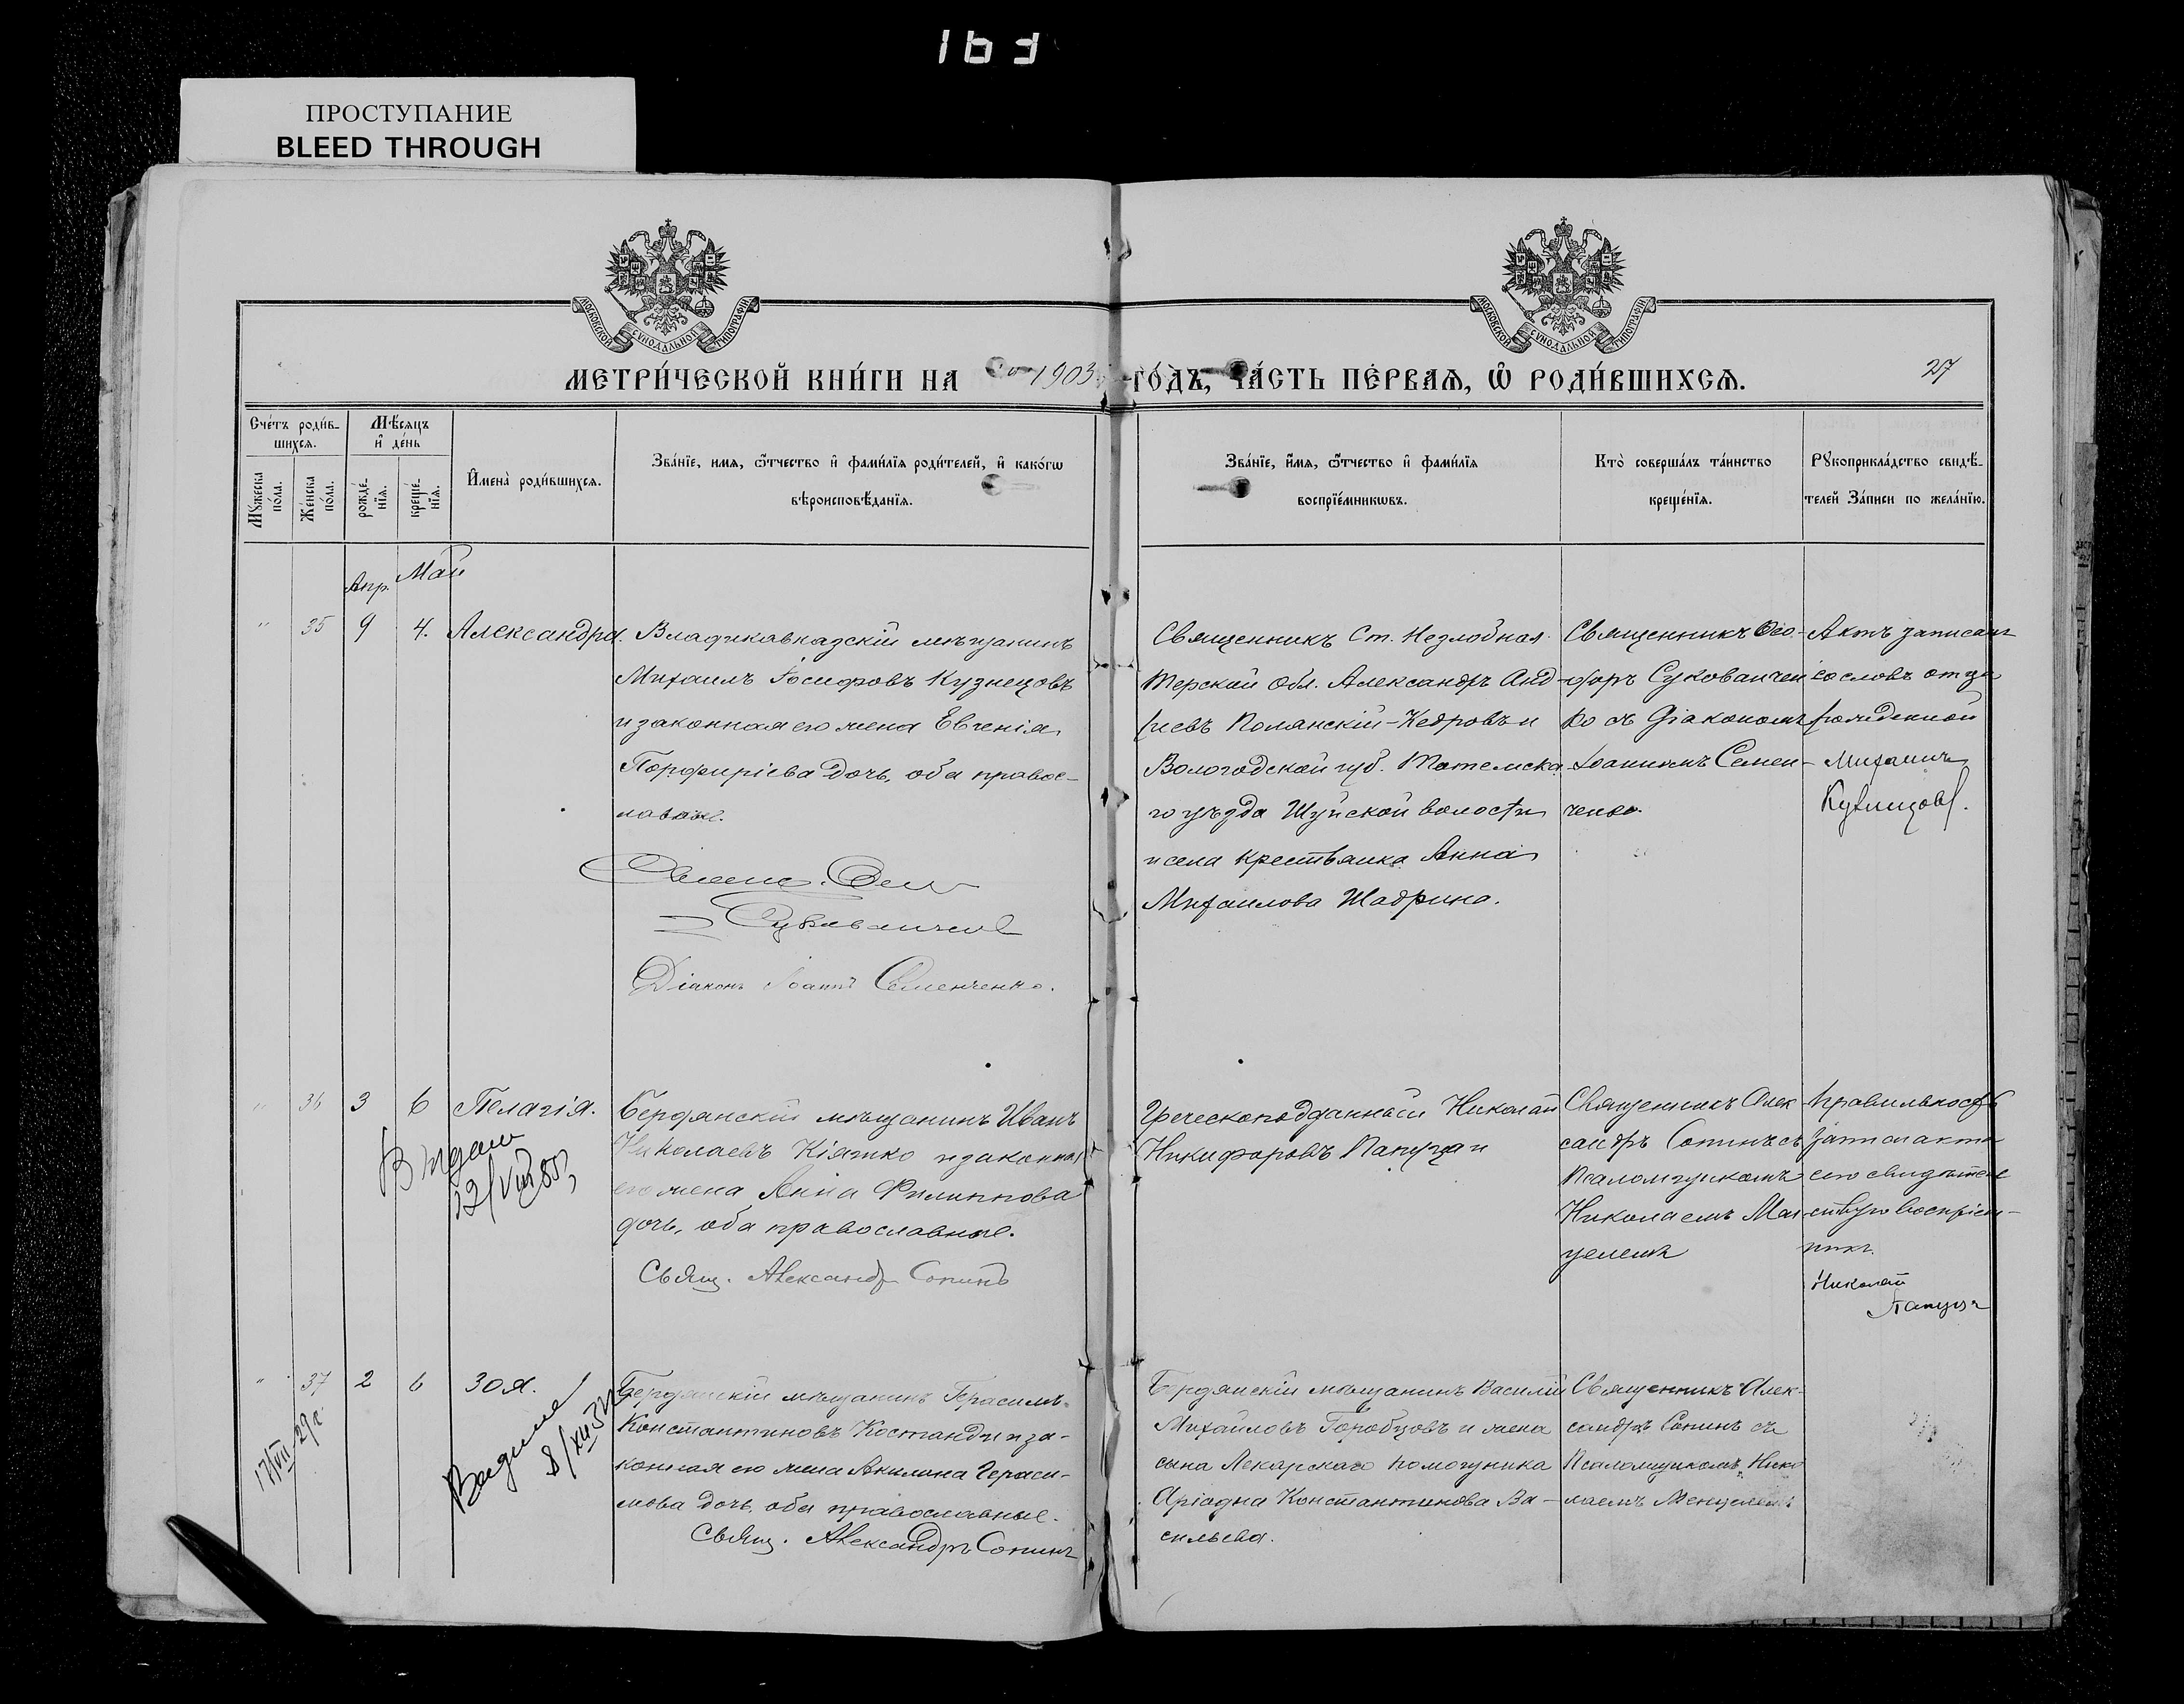 163
ПРОСТУПАНИЕ
BLEED THROUGH
МОСКОВСКОЙ СУНОДАЛЬНОЙ ТИПОГРАФІИ
МОСКОВСКОЙ СУНОДАЛЬНОЙ ТИПОГРАФІИ
МЕТРИ́ЧЕСКОЙ КНИ́ГИ НА 1903 ГО́ДЪ, ЧА́СТЬ ПЕ́РВАѦ, Ѡ҆ РОДИ́ВШИХСѦ.
27
Сче́тъ роди́в-
шихсѧ.
Мꙋ́жеска
по́ла.
Же́нска
по́ла.
Мѣ́сѧцъ
и҆ де́нь
рожде́-
нїѧ.
креще́-
нїѧ.
И҆мена̀ роди́вшихсѧ.
Зва́нїе, имѧ, ѻ҆́тчество и҆ фами́лїѧ роди́телей, и҆ како́гѡ
вѣроисповѣ́данїѧ.
Зва́нїе, и҆́мѧ, ѻ҆́тчество и҆ фами́лїѧ
воспрїе́мникѡвъ.
Кто̀ соверша́лъ та́инство
креще́нїѧ.
Рꙋкоприкла́дство свидѣ́-
телей За́писи по жела́нїю.
Апр. Май
" 35 9 4. Александра.
Владикавказскій мѣщанинъ
Михаилъ Іосифовъ Кузнецовъ
и законная его жена Евгенія
Порфиріева дочь, оба правос-
лавные.
Сукованченко
Діаконъ Іоаннъ Семенченко.
Священникъ Ст. Незлобная
Терской Обл. Александръ Анд-
реевъ Полянскій-Кедровъ и
Вологодской губ. Тотемска-
го уѣзда Шуйской волости
и села крестьянка Анна
Михаилова Шадрина.
Священникъ Ѳео-
форъ Сукованчен
ко съ Діакономъ
Іоанномъ Семен-
ченко.
Актъ записанъ
со словъ отца
рожденной
Михаилъ
Кузнецовъ.
" 36 3 6 Пелагія.
12/VIII
Бердянскій мѣщанинъ Иванъ
Николаевъ Кіяшко и законная
его жена Анна Филиппова
дочь, оба православные.
Свящ. Александр Сопинъ
Греческоподданный Николай
Никифоровъ Папуца и
Священникъ Алек
сандръ Сопинъ съ
Псаломщикомъ
Николаемъ
Правильность
записи акта
сего свидѣтель
ствую воспріем-
никъ
Николай
Папуца
" 37 2 6 Зоя.
17/VII 29г.
8/XII
Бердянскій мѣщанинъ Герасимъ
Константиновъ Костанди и за-
конная его жена Акилина Гераси-
мова дочь, оба православные.
Свящ. Александръ Сопинъ
Бердянскій мѣщанинъ Василій
Михайловъ Горобцовъ и жена
сына Лекарскаго помощника
Аріадна Константинова Ва-
сильева.
Священникъ Алек-
сандръ Сопинъ съ
Псаломщикомъ Нико
лаемъ